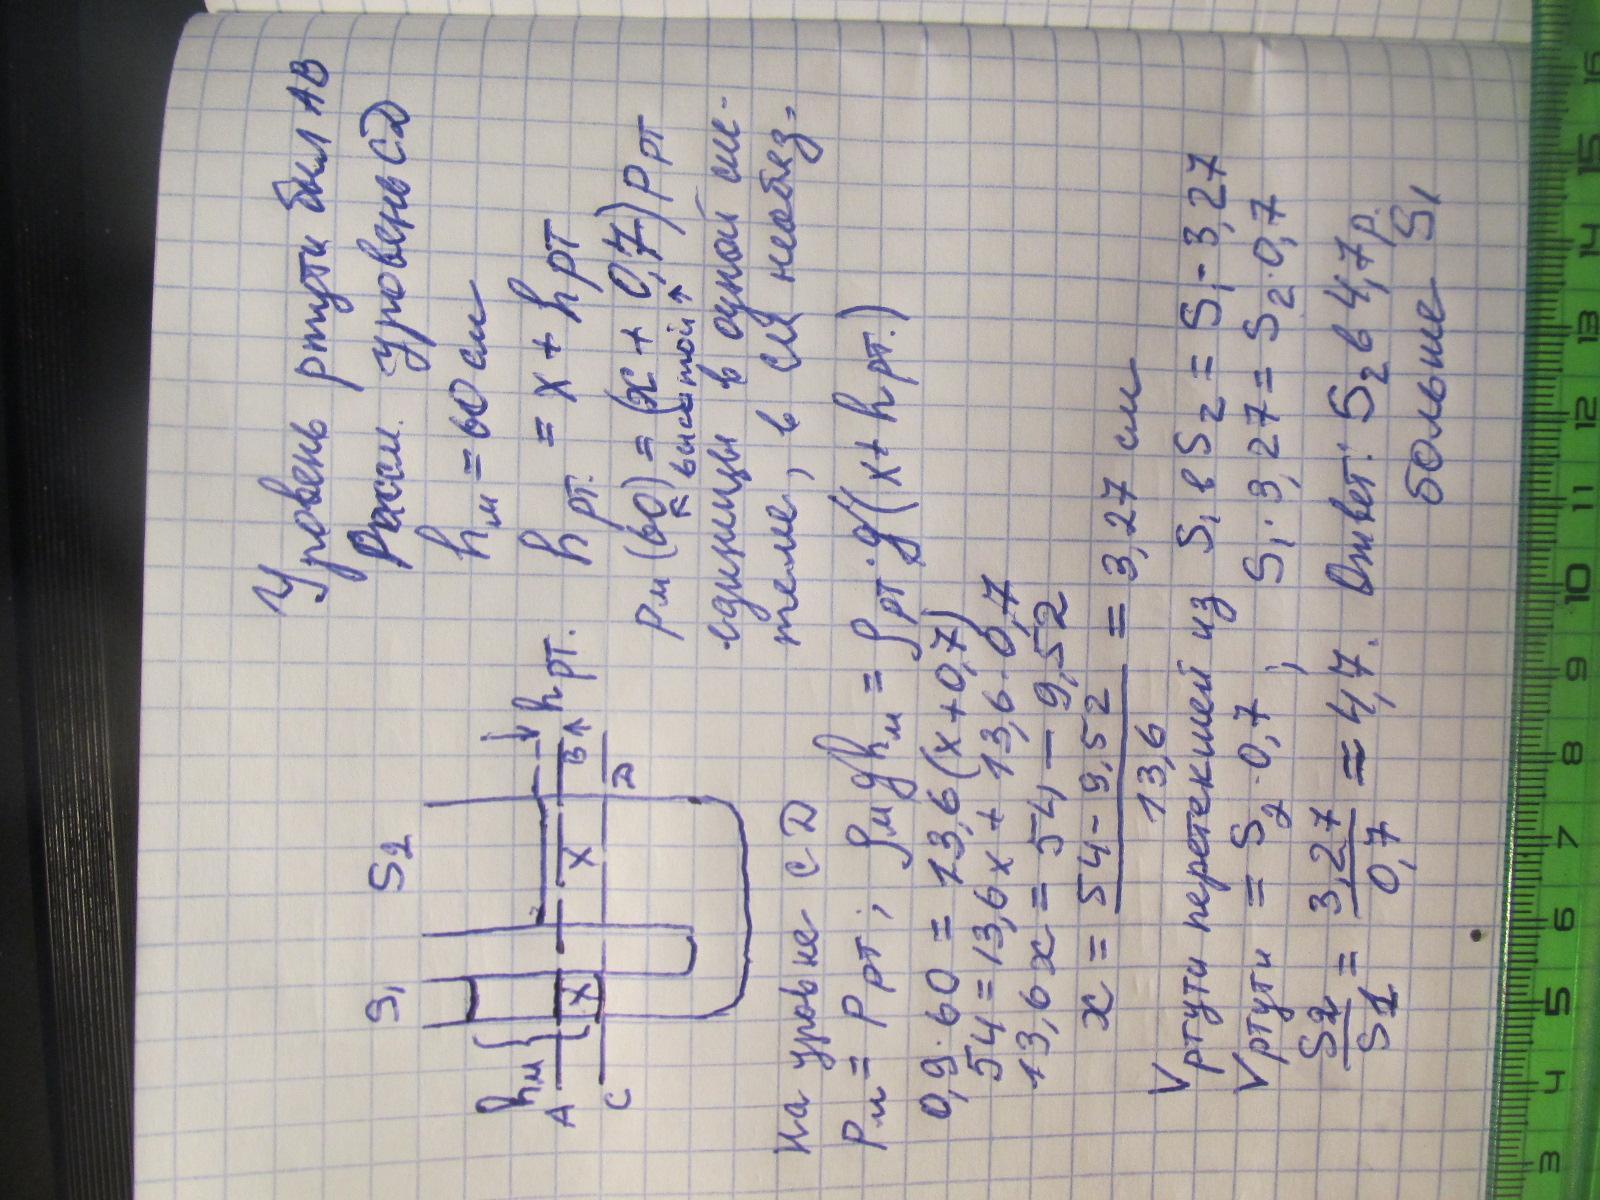 Уровень ртути был АВ
Рассм. уровень СД
hм = 60 см
hрт. = x + hрт
Pм (60) = (x + 0,7) Pрт
высотой
единицы в одной сис-
теме, в см необяз.
S1 S2
hм
A X X B hрт.
C D
На уровне СД
Pм = Pрт; ρмghм = ρрт·g(x + hрт.)
0,9·60 = 13,6(x+0,7)
54 = 13,6x + 13,6·0,7
13,6x = 54 - 9,52
x = 54-9,52 / 13,6 = 3,27 см
Vртути перетекшей из S1 в S2 = S1·3,27
Vртути = S2·0,7 ; S1·3,27 = S2·0,7
S2/S1 = 3,27/0,7 ≈ 4,7. Ответ: S2 в 4,7 р.
больше S1
3 4 5 6 7 8 9 10 11 12 13 14 15 16